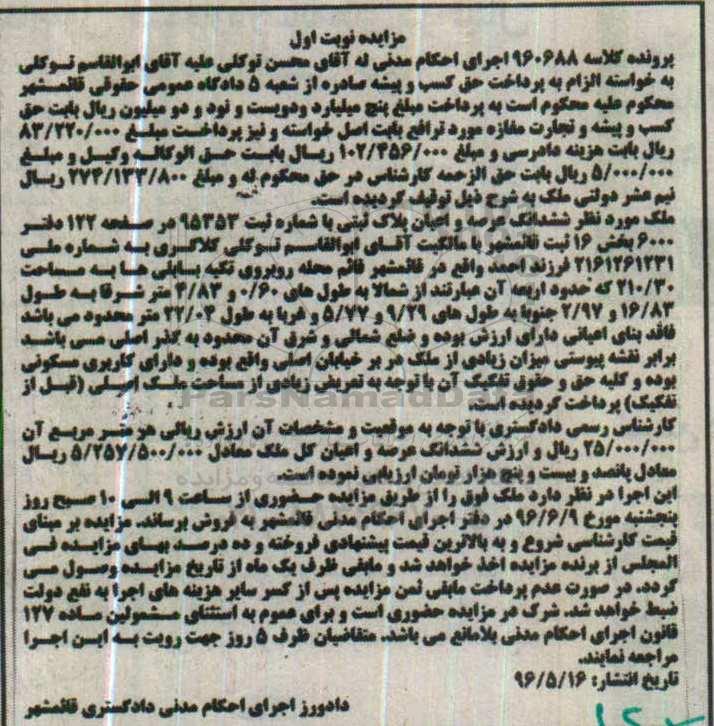 مزایده نوبت اول
پرونده کلاسه ۹۶۰۶۸۸ اجرای احکام مدنی له آقای محسن توکلی علیه آقای ابوالقاسم توکلی
به خواسته الزام به پرداخت حق کسب و پیشه صادره از شعبه ۵ دادگاه عمومی حقوقی قائمشهر
محکوم علیه محکوم است به پرداخت مبلغ پنج میلیارد ودویست و نود و دو میلیون ریال بابت حق
کسب و پیشه و تجارت مغازه مورد ترافع بابت اصل خواسته و نیز پرداخت مبلغ ۸۳/۲۲۰/۰۰۰
ریال بابت هزینه دادرسی و مبلغ ۱۰۲/۴۵۶/۰۰۰ ریال بابت حق الوکاله وکیل و مبلغ
۵/۰۰۰/۰۰۰ ریال بابت حق الزحمه کارشناس در حق محکوم له و مبلغ ۲۷۴/۱۳۳/۸۰۰ ریال
نیم عشر دولتی ملک به شرح ذیل توقیف گردیده است.
ملک مورد نظر ششدانگ عرصه و اعیان پلاک ثبتی با شماره ثبت ۹۵۳۵۳ در صفحه ۱۲۲ دفتر
۶۰۰۰ بخش ۱۶ ثبت قائمشهر با مالکیت آقای ابوالقاسم توکلی کلاگری به شماره ملی
۲۱۶۱۲۶۱۲۳۱ فرزند احمد واقع در قائمشهر قائم محله روبروی تکیه بابلی ها به مساحت
۲۱۰/۳۰ که حدود اربعه آن عبارتند از شمالا به طول های ۰/۶۰ و ۴/۸۳ متر شرقا به طول
۱۶/۸۳ و ۲/۹۷ جنوبا به طول های ۹/۲۹ و ۵/۷۷ و غربا به طول ۲۲/۰۴ متر محدود می باشد
فاقد بنای اعیانی دارای ارزش بوده و ضلع شمالی و شرق آن محدود به گذر اصلی می باشد
برابر نقشه پیوستی میزان زیادی از ملک در بر خیابان اصلی واقع بوده و دارای کاربری مسکونی
بوده و کلیه حق و حقوق تفکیک آن با توجه به تعریض زیادی از مساحت ملک اصلی (قبل از
تفکیک) پرداخت گردیده است.
ParsNamadData
کارشناس رسمی دادگستری با توجه به موقعیت و مشخصات آن ارزش ریالی هر متر مربع آن
۲۵/۰۰۰/۰۰۰ ریال و ارزش ششدانگ عرصه و اعیان کل ملک معادل ۵/۲۵۷/۵۰۰/۰۰۰ ریال
معادل پانصد و بیست و پنج هزار تومان ارزیابی نموده است.
این اجرا در نظر دارد ملک فوق را از طریق مزایده حضوری از ساعت ۹ الی ۱۰ صبح روز
پنجشنبه مورخ ۹۶/۶/۹ در دفتر اجرای احکام مدنی قائمشهر به فروش برساند. مزایده بر مبنای
قیمت کارشناسی شروع و به بالاترین قیمت پیشنهادی فروخته و ده درصد بهای مزایده فی
المجلس از برنده مزایده اخذ خواهد شد و مابقی ظرف یک ماه از تاریخ مزایده وصول می
گردد. در صورت عدم پرداخت مابقی ثمن مزایده پس از کسر سایر هزینه های اجرا به نفع دولت
ضبط خواهد شد. شرک در مزایده حضوری است و برای عموم به استثنای مشمولین ماده ۱۲۷
قانون اجرای احکام مدنی بلامانع می باشد. متقاضیان ظرف ۵ روز جهت رویت به این اجرا
مراجعه نمایند.
تاریخ انتشار: ۹۶/۵/۱۶
دادورز اجرای احکام مدنی دادگستری قائمشهر